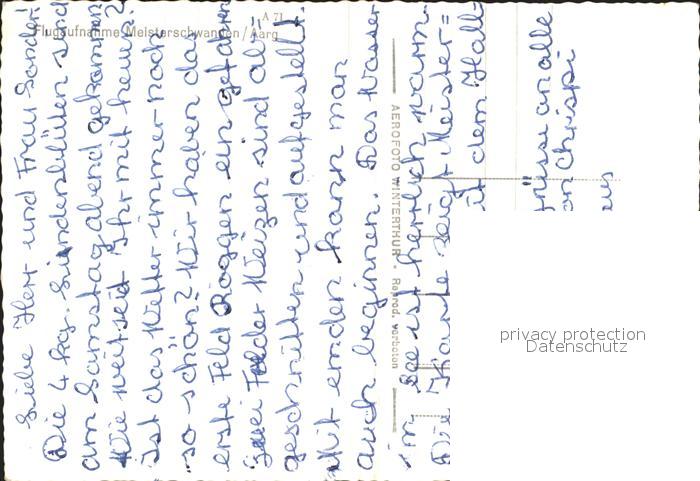 A 71
Flugaufnahme Meisterschwanden / Aarg.
Liebe Herr und Frau Sonder
Die 4 kg. Lindenblüten sind
am Samstagabend gekommen
Wie weit seid Ihr mit heuen?
Ist das Wetter immer noch
so schön? Wir haben das
erste Feld Roggen eingefahren
zwei Felder Weizen sind ab=
geschnitten und aufgestellt.
Mit emden kann man
auch beginnen. Das Wasser
im See ist herrlich warm.
Die Karte zeigt Meister=
it dem Hall
rüsse an alle
on Christi
aus
AEROFOTO WINTERTHUR · Reprod. verboten
privacy protection
Datenschutz